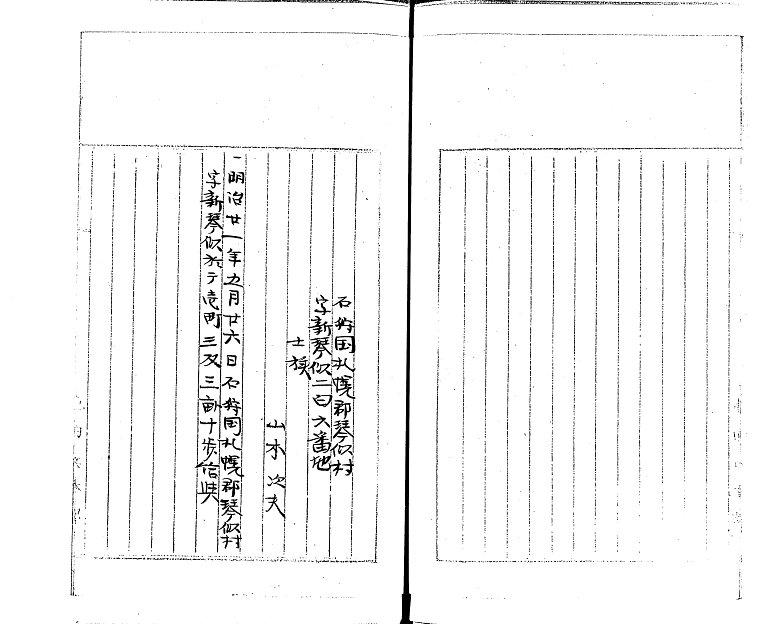 石狩国札幌郡琴似村
字新琴似二百六番地
士族
山本次夫
一明治廿一年五月廿六日石狩国札幌郡琴似村
字新琴似於テ壱町三反三畝十歩給与